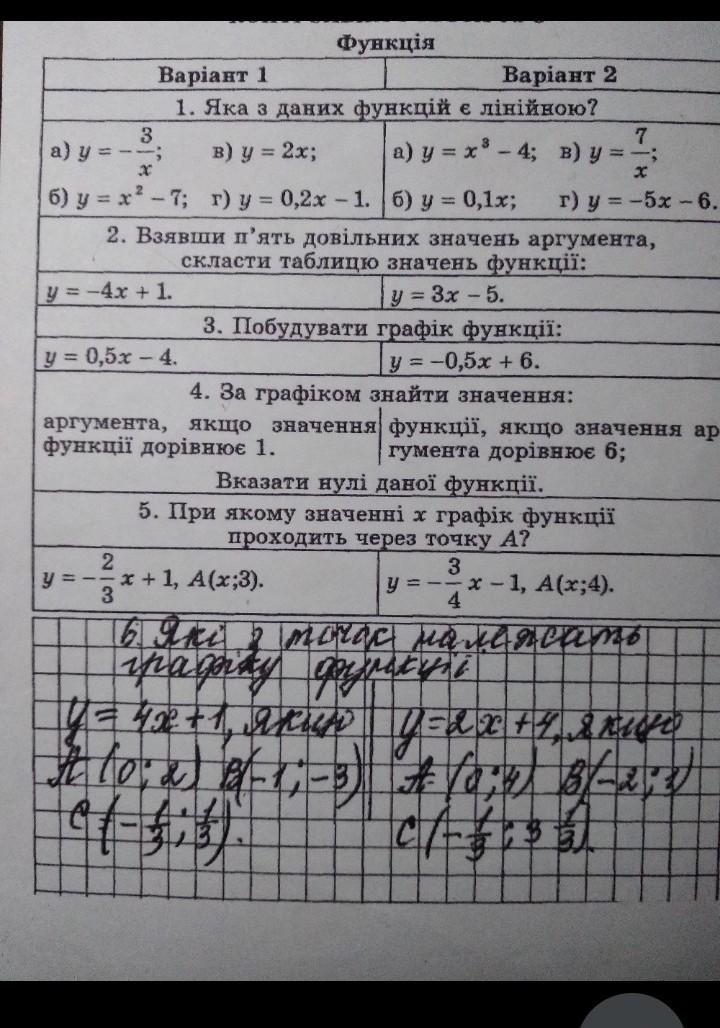 Функція
Варіант 1 Варіант 2
1. Яка з даних функцій є лінійною?
а) y = −3/x; в) y = 2x; а) y = x³ − 4; в) y = 7/x;
б) y = x² − 7; г) y = 0,2x − 1. б) y = 0,1x; г) y = −5x − 6.
2. Взявши п’ять довільних значень аргумента,
скласти таблицю значень функції:
y = −4x + 1. y = 3x − 5.
3. Побудувати графік функції:
y = 0,5x − 4. y = −0,5x + 6.
4. За графіком знайти значення:
аргумента, якщо значення функції, якщо значення ар
функції дорівнює 1. гумента дорівнює 6;
Вказати нулі даної функції.
5. При якому значенні x графік функції
проходить через точку A?
y = −2/3 x + 1, A(x;3). y = −3/4 x − 1, A(x;4).
6. Які з точок належать
графіку функції
y = 4x + 1, якщо y = 2x + 4, якщо
A (0; 2) B(−1; −3) A (0; 4) B(−2; )
C (−1/3; 1/3). C (−1/3; 3 1/3).